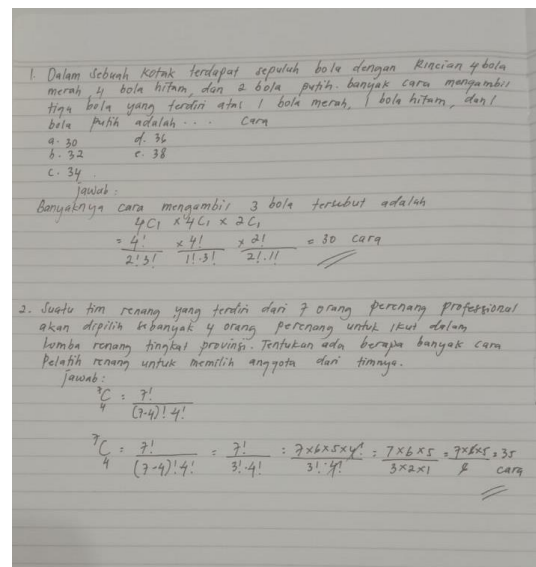 1. Dalam sebuah kotak terdapat sepuluh bola dengan Rincian 4 bola
merah 4 bola hitam, dan 2 bola putih. banyak cara mengambil
tiga bola yang terdiri atas 1 bola merah, 1 bola hitam, dan 1
bola putih adalah . . . cara
a. 30 d. 36
b. 32 e. 38
c. 34
jawab :
Banyaknya cara mengambil 3 bola tersebut adalah
4C1 × 4C1 × 2C1
= 4!/2!3! × 4!/1!.3! × 2!/2!.1! = 30 cara
2. Suatu tim renang yang terdiri dari 7 orang perenang professional
akan dipilih sebanyak 4 orang perenang untuk ikut dalam
Lomba renang tingkat provinsi. Tentukan ada berapa banyak cara
Pelatih renang untuk memilih anggota dari timnya.
jawab :
7C4 = 7!/(7-4)! 4!
7C4 = 7!/(7-4)! 4! = 7!/3!.4! = 7×6×5×4!/3!.4! = 7×6×5/3×2×1 = 7×6×5/6 = 35
cara